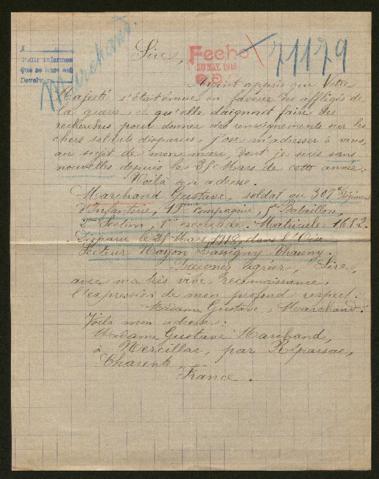 Marchand.
Sire,
Fecho
71179
Ayant appris que Votre
Majesté s'était émue en faveur des affligés de
la guerre et qu'elle daignait faire des
recherches pour donner des renseignements sur les
chers soldats disparus, j'ose m'adresser à vous,
au sujet de mon mari, dont je suis sans
nouvelles depuis le 25 Mars de cette année.
Voilà son adresse.
Marchand Gustave, soldat au 307 Régiment
d'Infanterie, Compagnie, Bataillon,
Section, escouade. Matricule 1682.
Disparu le 25 Mars 1918, dans l'Oise
Secteur Noyon Lassigny Chauny.
Daignez agréer, Sire,
avec ma très vive reconnaissance,
l'expression de mon profond respect.
Madame Gustave Marchand.
Voilà mon adresse:
Madame Gustave Marchand,
à Mercillac, par Réparsac,
Charente
France.